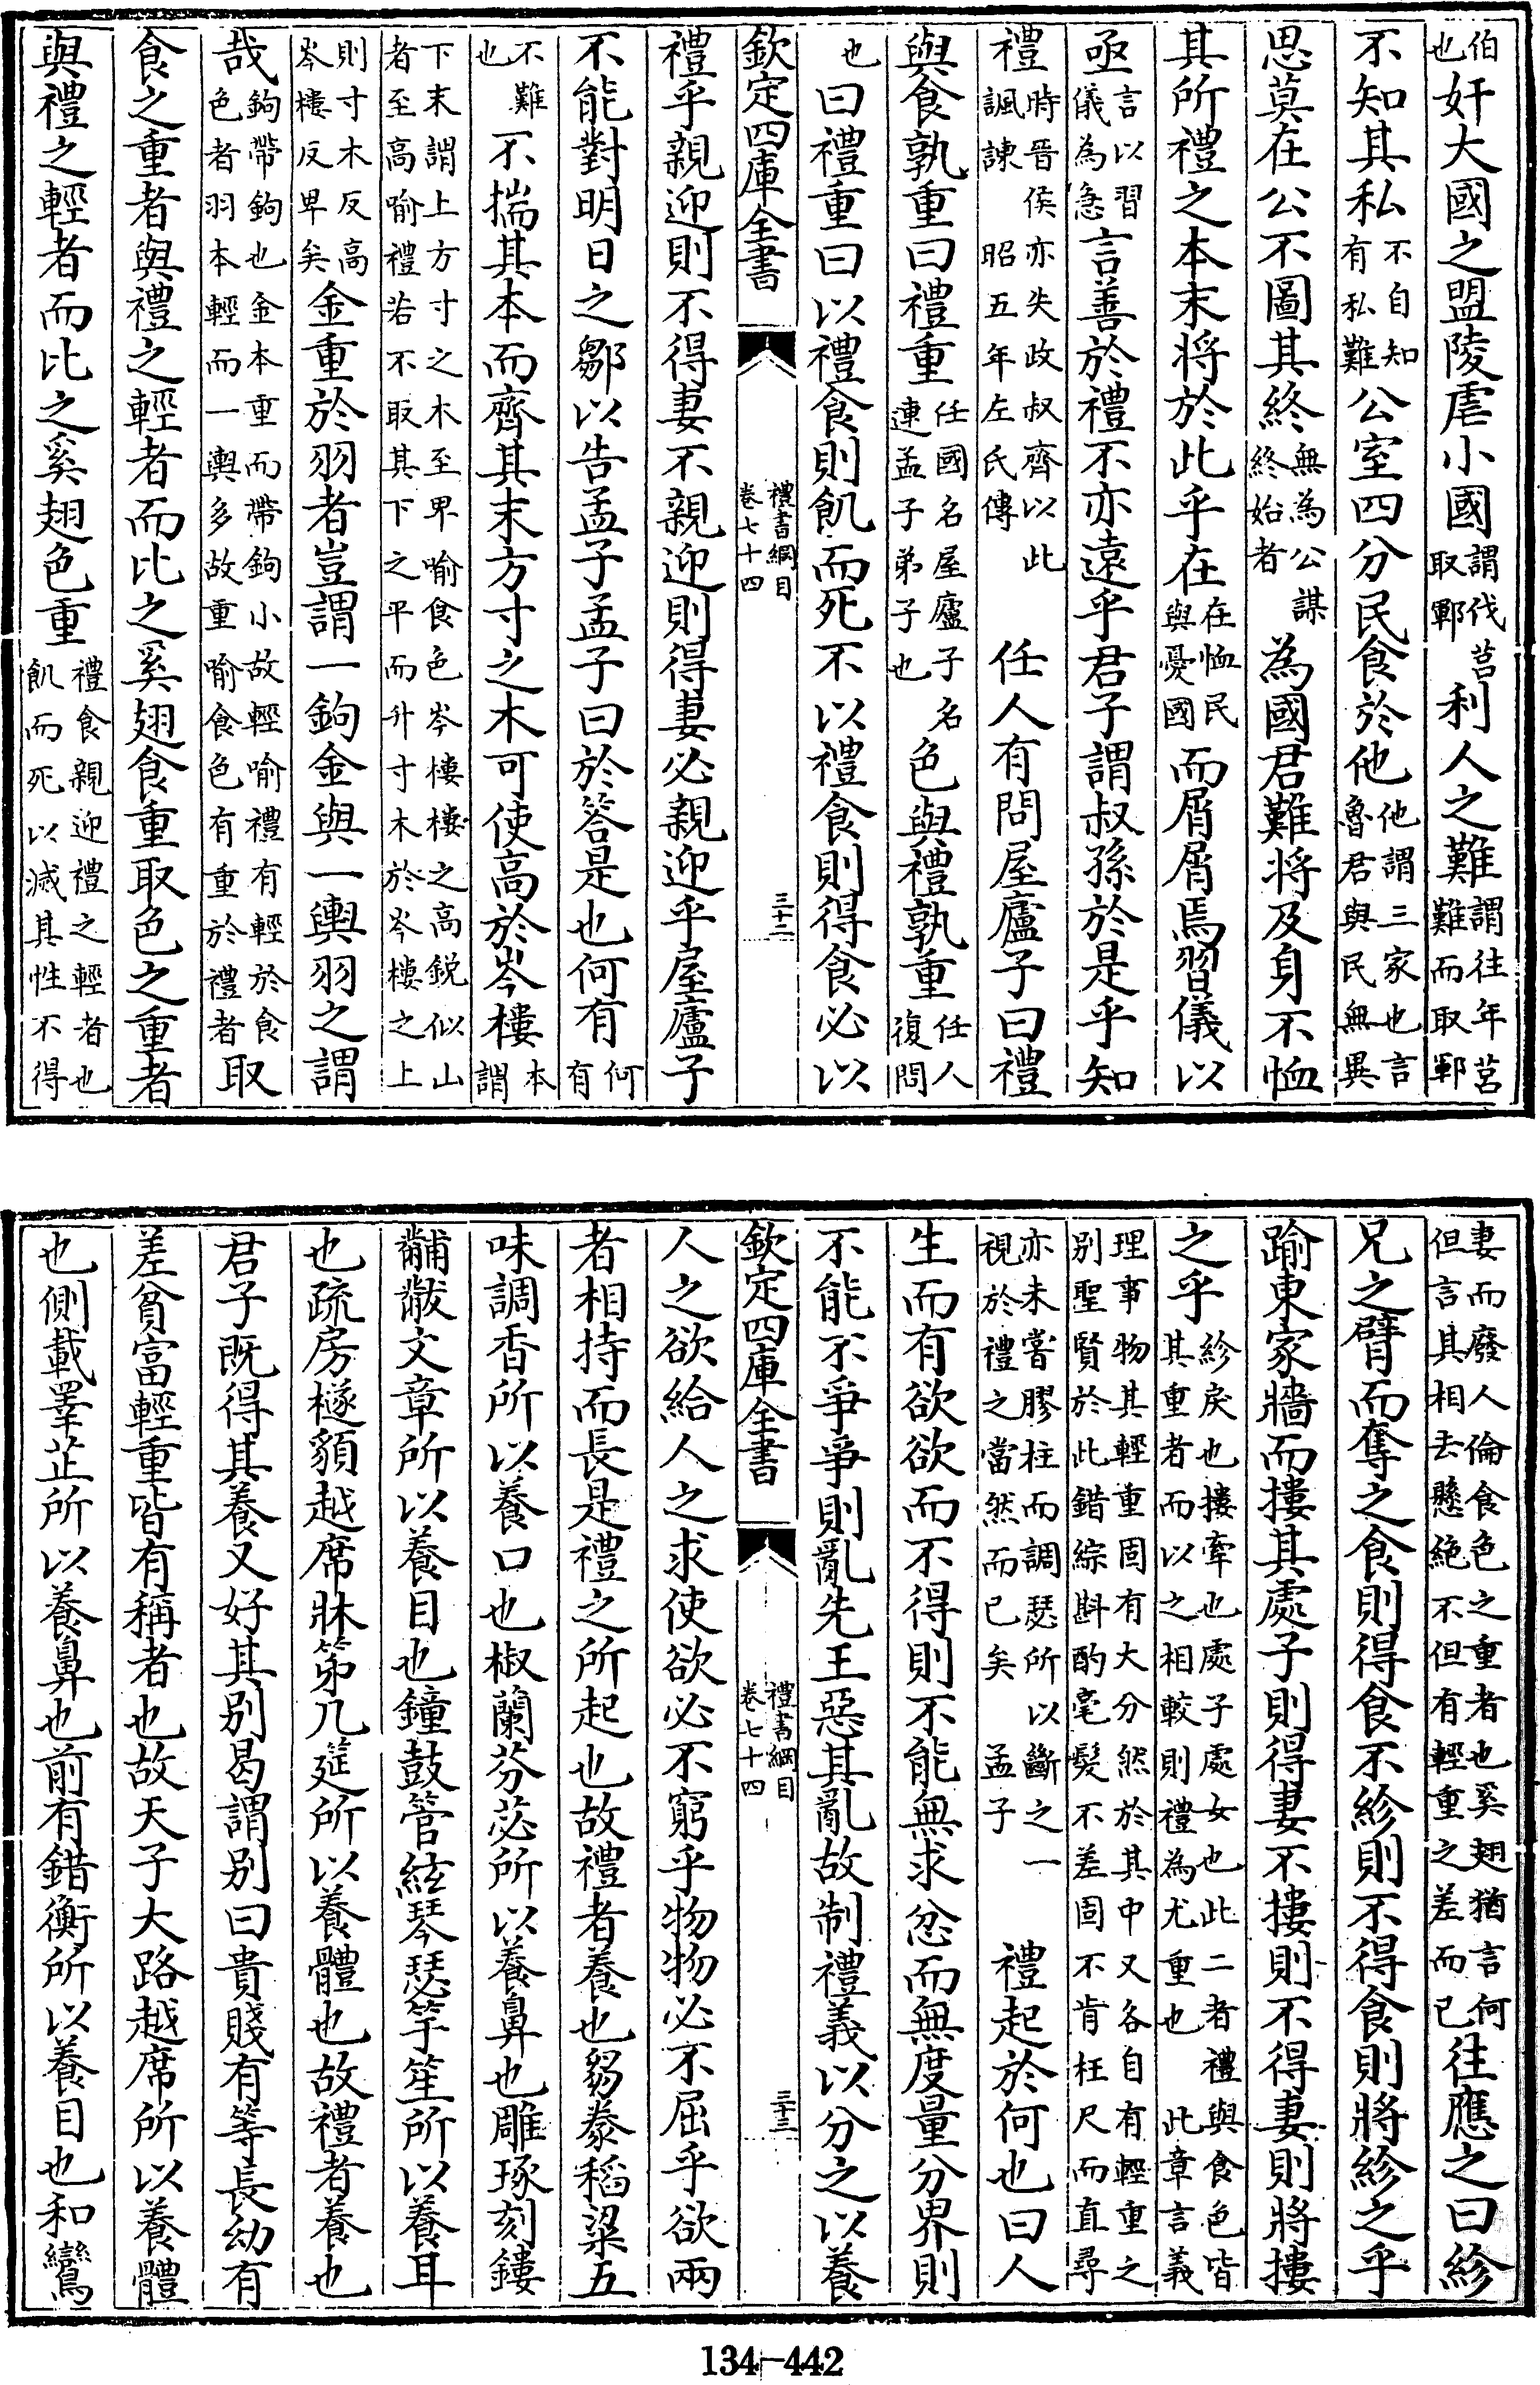 伯也奸大國之盟陵虐小國謂伐莒取鄆利人之難謂往年莒難而取鄆
不知其私不自知有私難公室四分民食於他他謂三家也言魯君與民無異
思莫在公不圖其終無為公謀終始者為國君難將及身不恤
其所禮之本末將於此乎在在恤民與憂國而屑屑焉習儀以
亟言以習儀為急言善於禮不亦遠乎君子謂叔孫於是乎知
禮時晉侯亦失政叔齊以此諷諫昭五年左氏傳任人有問屋廬子曰禮
與食孰重曰禮重任國名屋廬子名連孟子弟子也色與禮孰重任人復問
也曰禮重曰以禮食則飢而死不以禮食則得食必以
欽定四庫全書
禮書綱目卷七十四
三十二
禮乎親迎則不得妻不親迎則得妻必親迎乎屋廬子
不能對明日之鄒以告孟子孟子曰於答是也何有何有
不難也不揣其本而齊其末方寸之木可使高於岑樓本謂
下末謂上方寸之木至卑喻食色岑樓樓之高銳似山者至高喻禮若不取其下之平而升寸木於岑樓之上
則寸木反高岑樓反卑矣金重於羽者豈謂一鉤金與一輿羽之謂
哉鉤帶鉤也金本重而帶鉤小故輕喻禮有輕於食色者羽本輕而一輿多故重喻食色有重於禮者取
食之重者與禮之輕者而比之奚翅食重取色之重者
與禮之輕者而比之奚翅色重禮食親迎禮之輕者也飢而死以滅其性不得
妻而廢人倫食色之重者也奚翅猶言何但言其相去懸絕不但有輕重之差而已往應之曰紾
兄之臂而奪之食則得食不紾則不得食則將紾之乎
踰東家牆而摟其處子則得妻不摟則不得妻則將摟
之乎紾戾也摟牽也處子處女也此二者禮與食色皆其重者而以之相較則禮為尤重也此章言義
理事物其輕重固有大分然於其中又各自有輕重之別聖賢於此錯綜斟酌毫髮不差固不肯枉尺而直尋
亦未嘗膠柱而調瑟所以斷之一視於禮之當然而已矣孟子禮起於何也曰人
生而有欲欲而不得則不能無求忿而無度量分界則
不能不爭爭則亂先王惡其亂故制禮義以分之以養
欽定四庫全書
禮書綱目卷七十四
三十三
人之欲給人之求使欲必不窮乎物物必不屈乎欲兩
者相持而長是禮之所起也故禮者養也芻豢稻粱五
味調香所以養口也椒蘭芬苾所以養鼻也雕琢刻鏤
黼黻文章所以養目也鐘鼓管絃琴瑟竽笙所以養耳
也疏房檖䫉越席牀笫几筵所以養體也故禮者養也
君子既得其養又好其別曷謂別曰貴賤有等長幼有
差貧富輕重皆有稱者也故天子大路越席所以養體
也側載睪芷所以養鼻也前有錯衡所以養目也和鸞
134-442